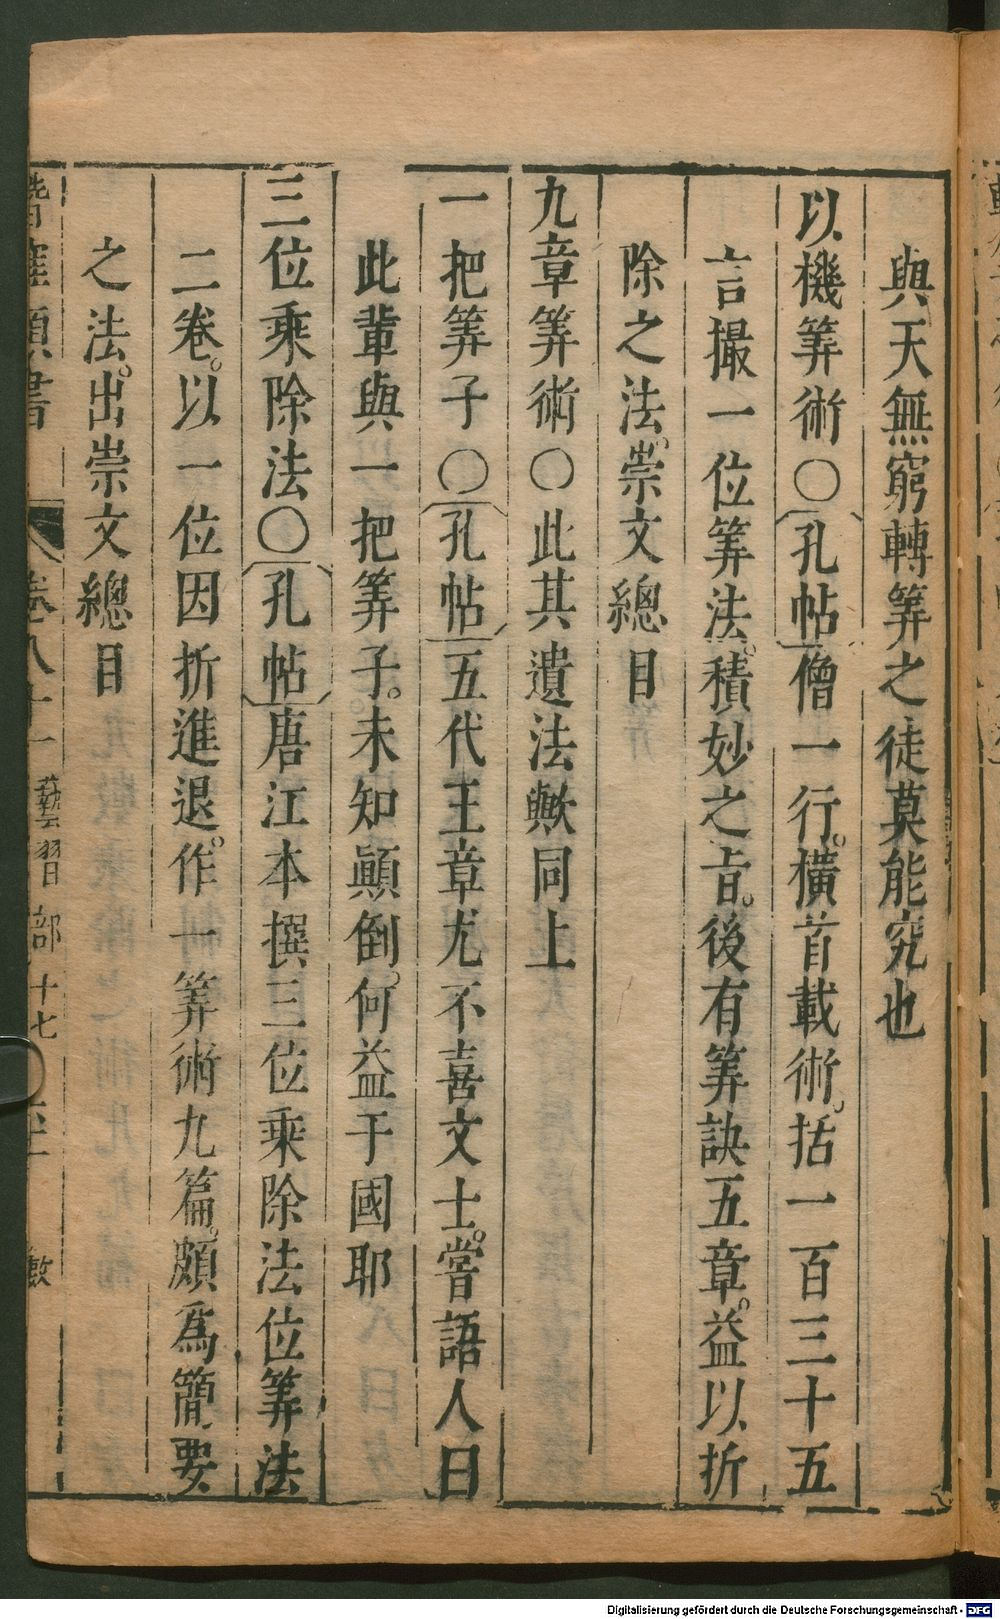 與天無窮轉筭之徒莫能究也
以機筭術〇孔帖僧一行。橫首載術。括一百三十五
言撮一位筭法。積妙之㫖。後有筭訣五章。益以折
除之法。崇文總目
九章筭術〇此其遺法歟同上
一把筭子〇孔帖五代王章尤不喜文士。嘗語人曰
此輩與一把筭子。未知顚倒。何益于國耶
三位乘除法〇孔帖唐江本撰三位乘除法位筭法
二卷。以一位因折進退。作一筭術九篇。頗爲簡要
之法。出崇文總目
卷八十一 藝習部十七 數
Digitalisierung gefördert durch die Deutsche Forschungsgemeinschaft - DFG